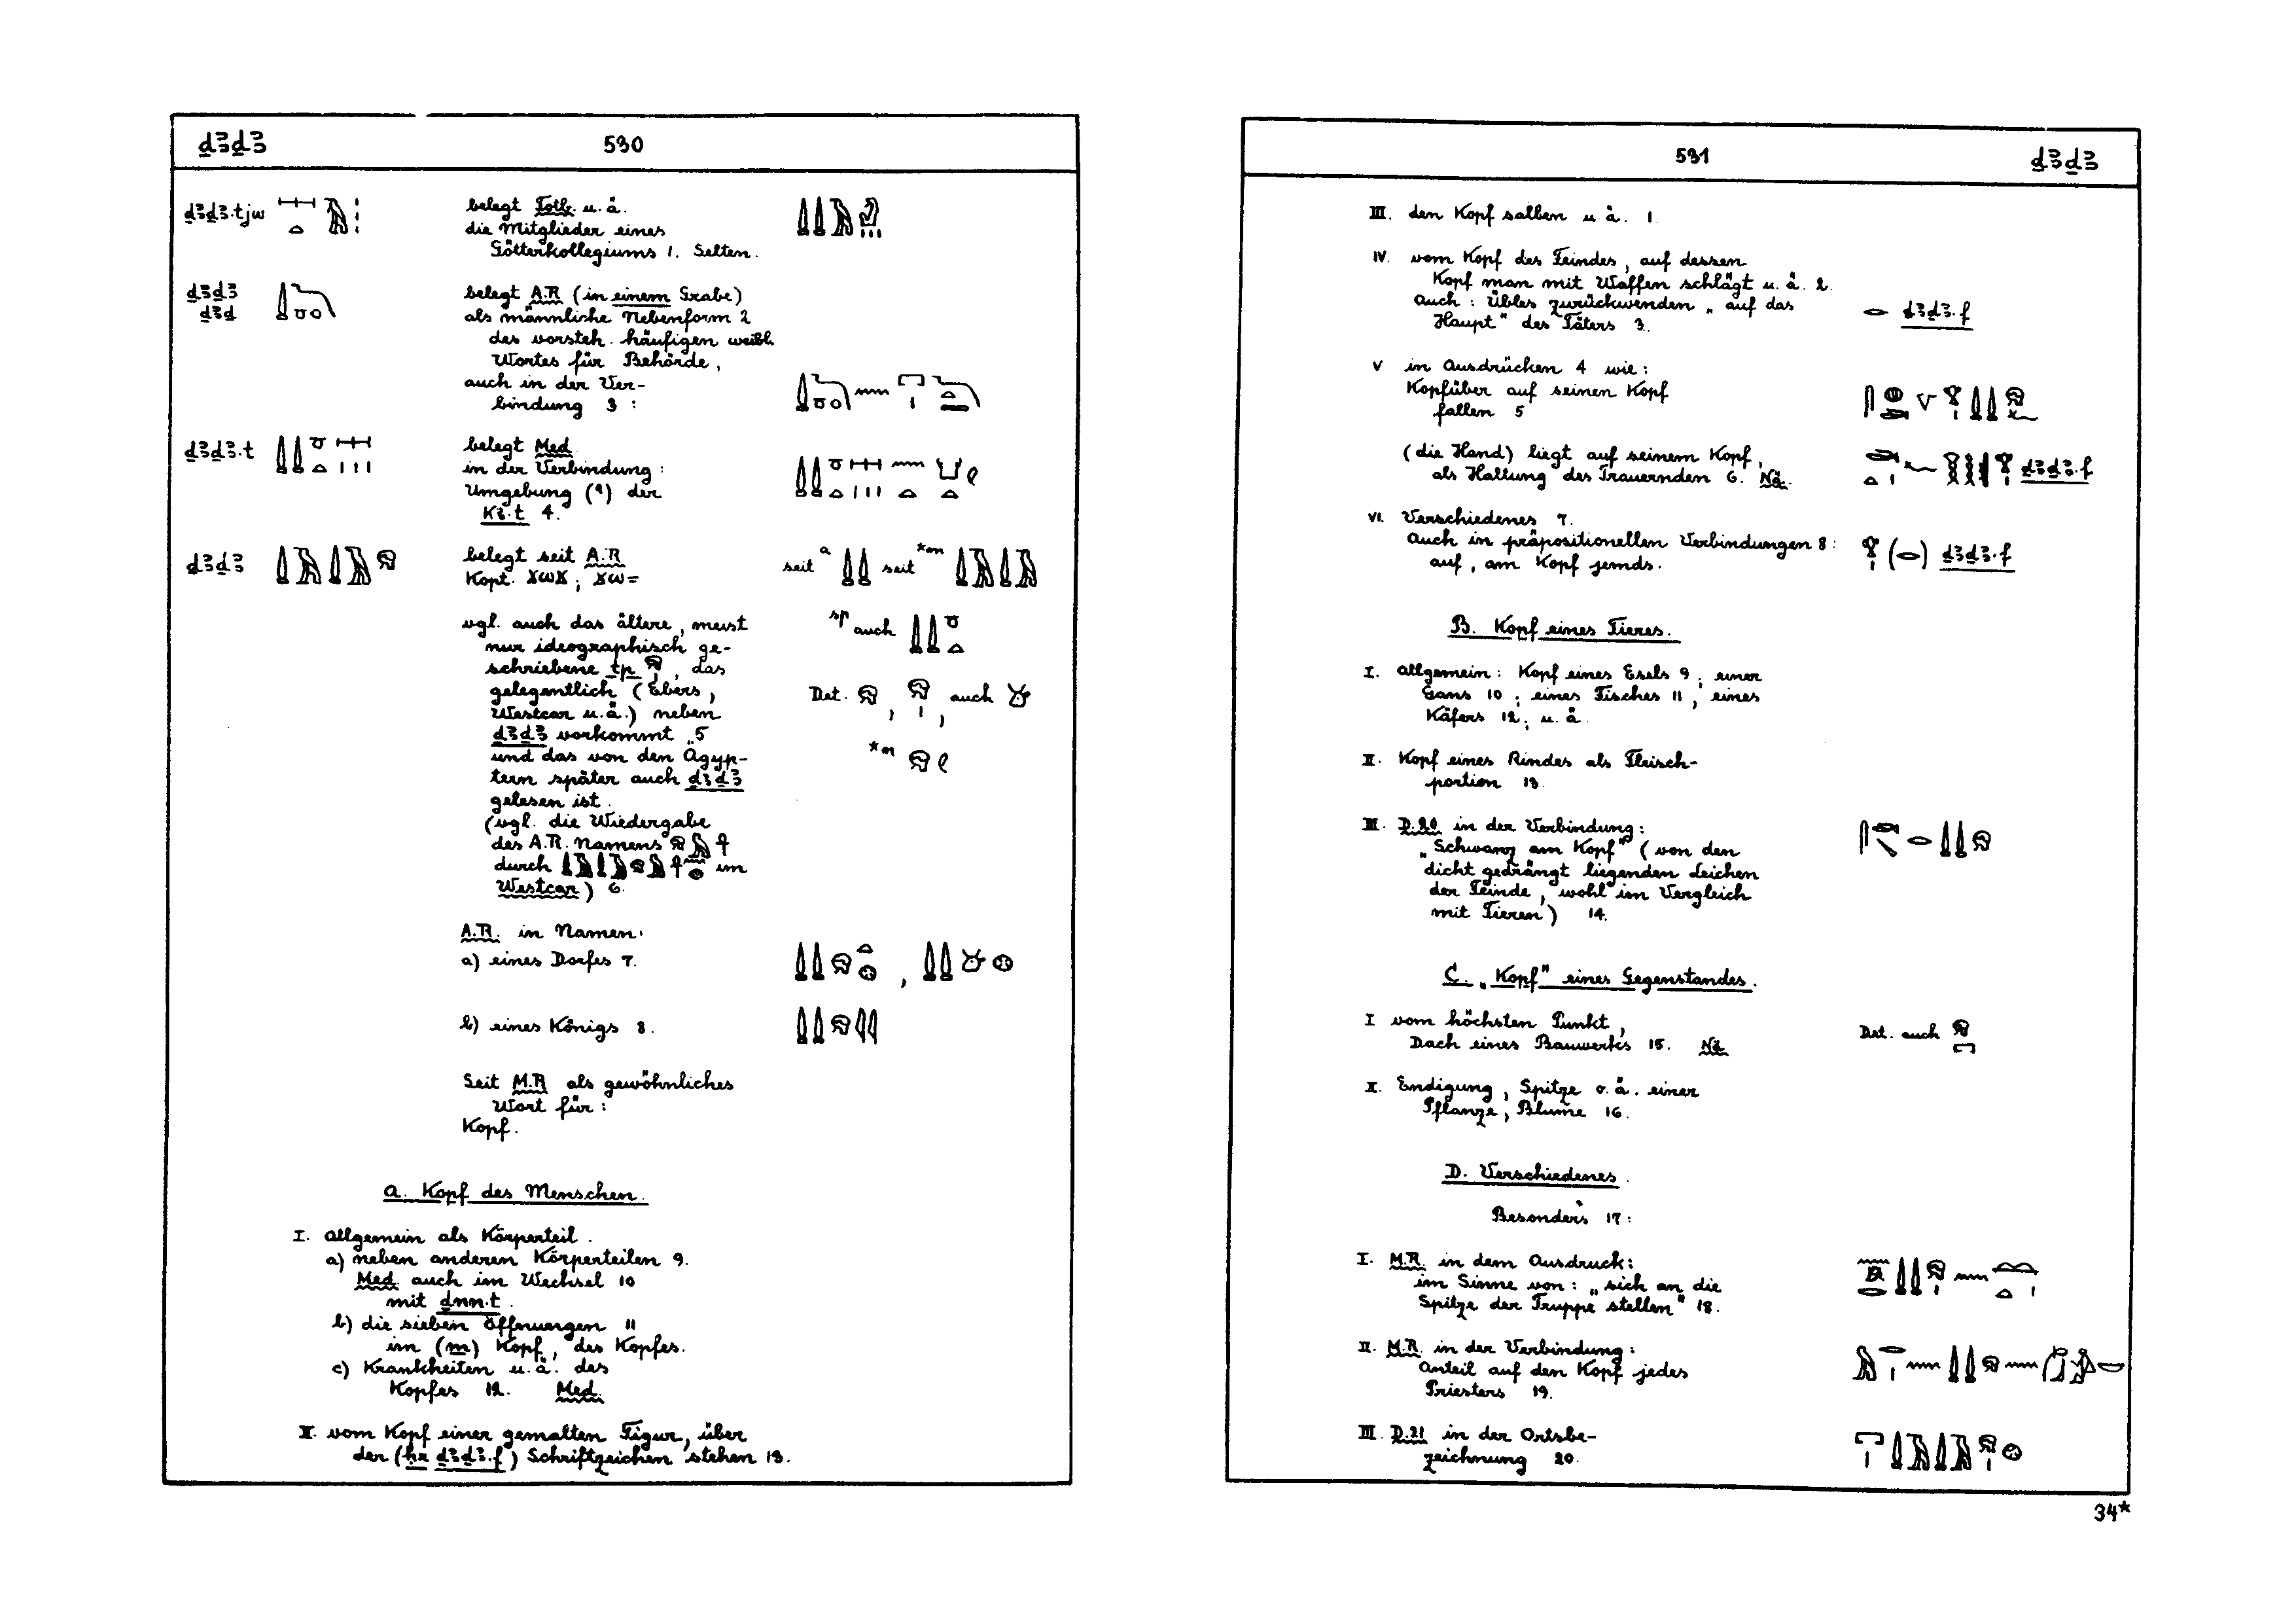 ḏꜣḏꜣ 530
ḏꜣḏꜣ.tjw
belegt Totb. u. ä.
die Mitglieder eines
Götterkollegiums 1. Selten.
ḏꜣḏꜣ
ḏꜣḏ
belegt A.R. (in einem Grabe)
als männliche Nebenform 2
des vorsteh. häufigen weibl.
Wortes für Behörde,
auch in der Ver-
bindung 3 :
ḏꜣḏꜣ.t
belegt Med.
in der Verbindung :
Umgebung (?) der
Kꜣ.t 4.
ḏꜣḏꜣ
belegt seit A.R.
Kopt. ϫωϫ ; ϫω=
seit a seit *m
vgl. auch das ältere, meist
nur ideographisch ge-
schriebene tp, das
gelegentlich (Ebers,
Westcar u. ä.) neben
ḏꜣḏꜣ vorkommt 5
und das von den Ägyp-
tern später auch ḏꜣḏꜣ
gelesen ist.
(vgl. die Wiedergabe
des A.R. Namens
durch im
Westcar) 6.
sp auch
Det. , , auch
*m
A.R. in Namen:
a) eines Dorfes 7. ,
b) eines Königs 8.
Seit M.R. als gewöhnliches
Wort für :
Kopf.
A. Kopf des Menschen.
I. allgemein als Körperteil.
a) neben anderen Körperteilen 9.
Med. auch im Wechsel 10
mit ḏnn.t.
b) die sieben Öffnungen 11
im (m) Kopf, des Kopfes.
c) Krankheiten u. ä. des
Kopfes 12. Med.
II. vom Kopf einer gemalten Figur, über
der (ḥr ḏꜣḏꜣ.f) Schriftzeichen stehen 13.
531 ḏꜣḏꜣ
III. den Kopf salben u. ä. 1.
IV. vom Kopf des Feindes, auf dessen
Kopf man mit Waffen schlägt u. ä. 2.
Auch : Übles zurückwenden „auf das
Haupt" des Täters 3. ḏꜣḏꜣ.f
V in Ausdrücken 4 wie :
Kopfüber auf seinen Kopf
fallen 5
(die Hand) liegt auf seinem Kopf,
als Haltung des Trauernden 6. Nä. ḏꜣḏꜣ.f
VI. Verschiedenes 7.
Auch in präpositionellen Verbindungen 8 :
auf, am Kopf jemds. ( ) ḏꜣḏꜣ.f
B. Kopf eines Tieres.
I. allgemein : Kopf eines Esels 9; einer
Gans 10; eines Fisches 11; eines
Käfers 12; u. ä.
II. Kopf eines Rindes als Fleisch-
portion 13.
III. D.20 in der Verbindung:
„Schwanz am Kopf" (von den
dicht gedrängt liegenden Leichen
der Feinde, wohl im Vergleich
mit Tieren) 14.
C. „Kopf" eines Gegenstandes.
I vom höchsten Punkt,
Dach eines Bauwerks 15. Nä. Det. auch
II. Endigung, Spitze o. ä. einer
Pflanze, Blume 16.
D. Verschiedenes.
Besonders 17 :
I. M.R. in dem Ausdruck:
im Sinne von : „sich an die
Spitze der Truppe stellen" 18.
II. M.R. in der Verbindung :
Anteil auf den Kopf jedes
Priesters 19.
III. D.21 in der Ortsbe-
zeichnung 20.
34*